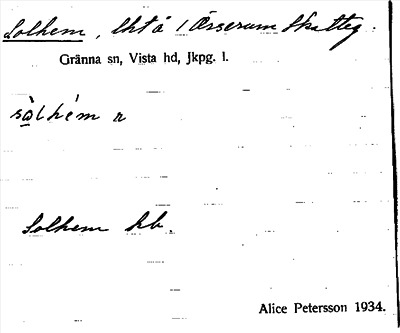 Solhem, lht å 1 Örserum Skatteg.
Gränna sn, Vista hd, Jkpg. l.
sòlhém n
Solhem kb.
Alice Petersson 1934.